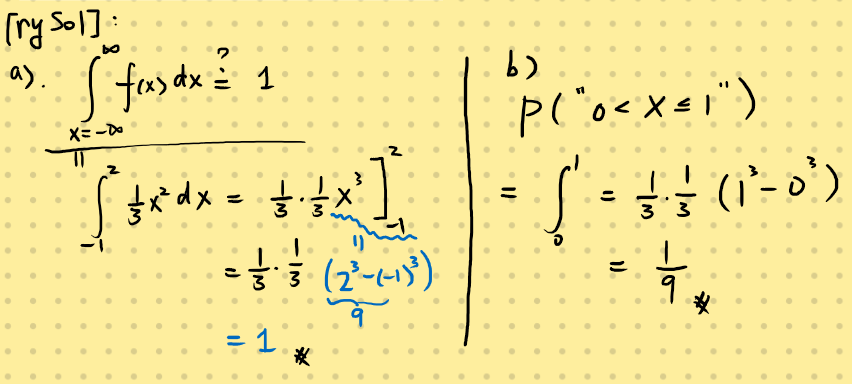 [ry Sol]:
a). ∫_{x=-∞}^{∞} f(x) dx ≟ 1
|| ∫_{-1}^{2} 1/3 x² dx = 1/3 · 1/3 x³ ]_{-1}^{2}
= 1/3 · 1/3 (2³-(-1)³)
9
= 1 ※
b)
P("0 < X ≤ 1")
= ∫_{0}^{1} = 1/3 · 1/3 (1³ - 0³)
= 1/9 ※